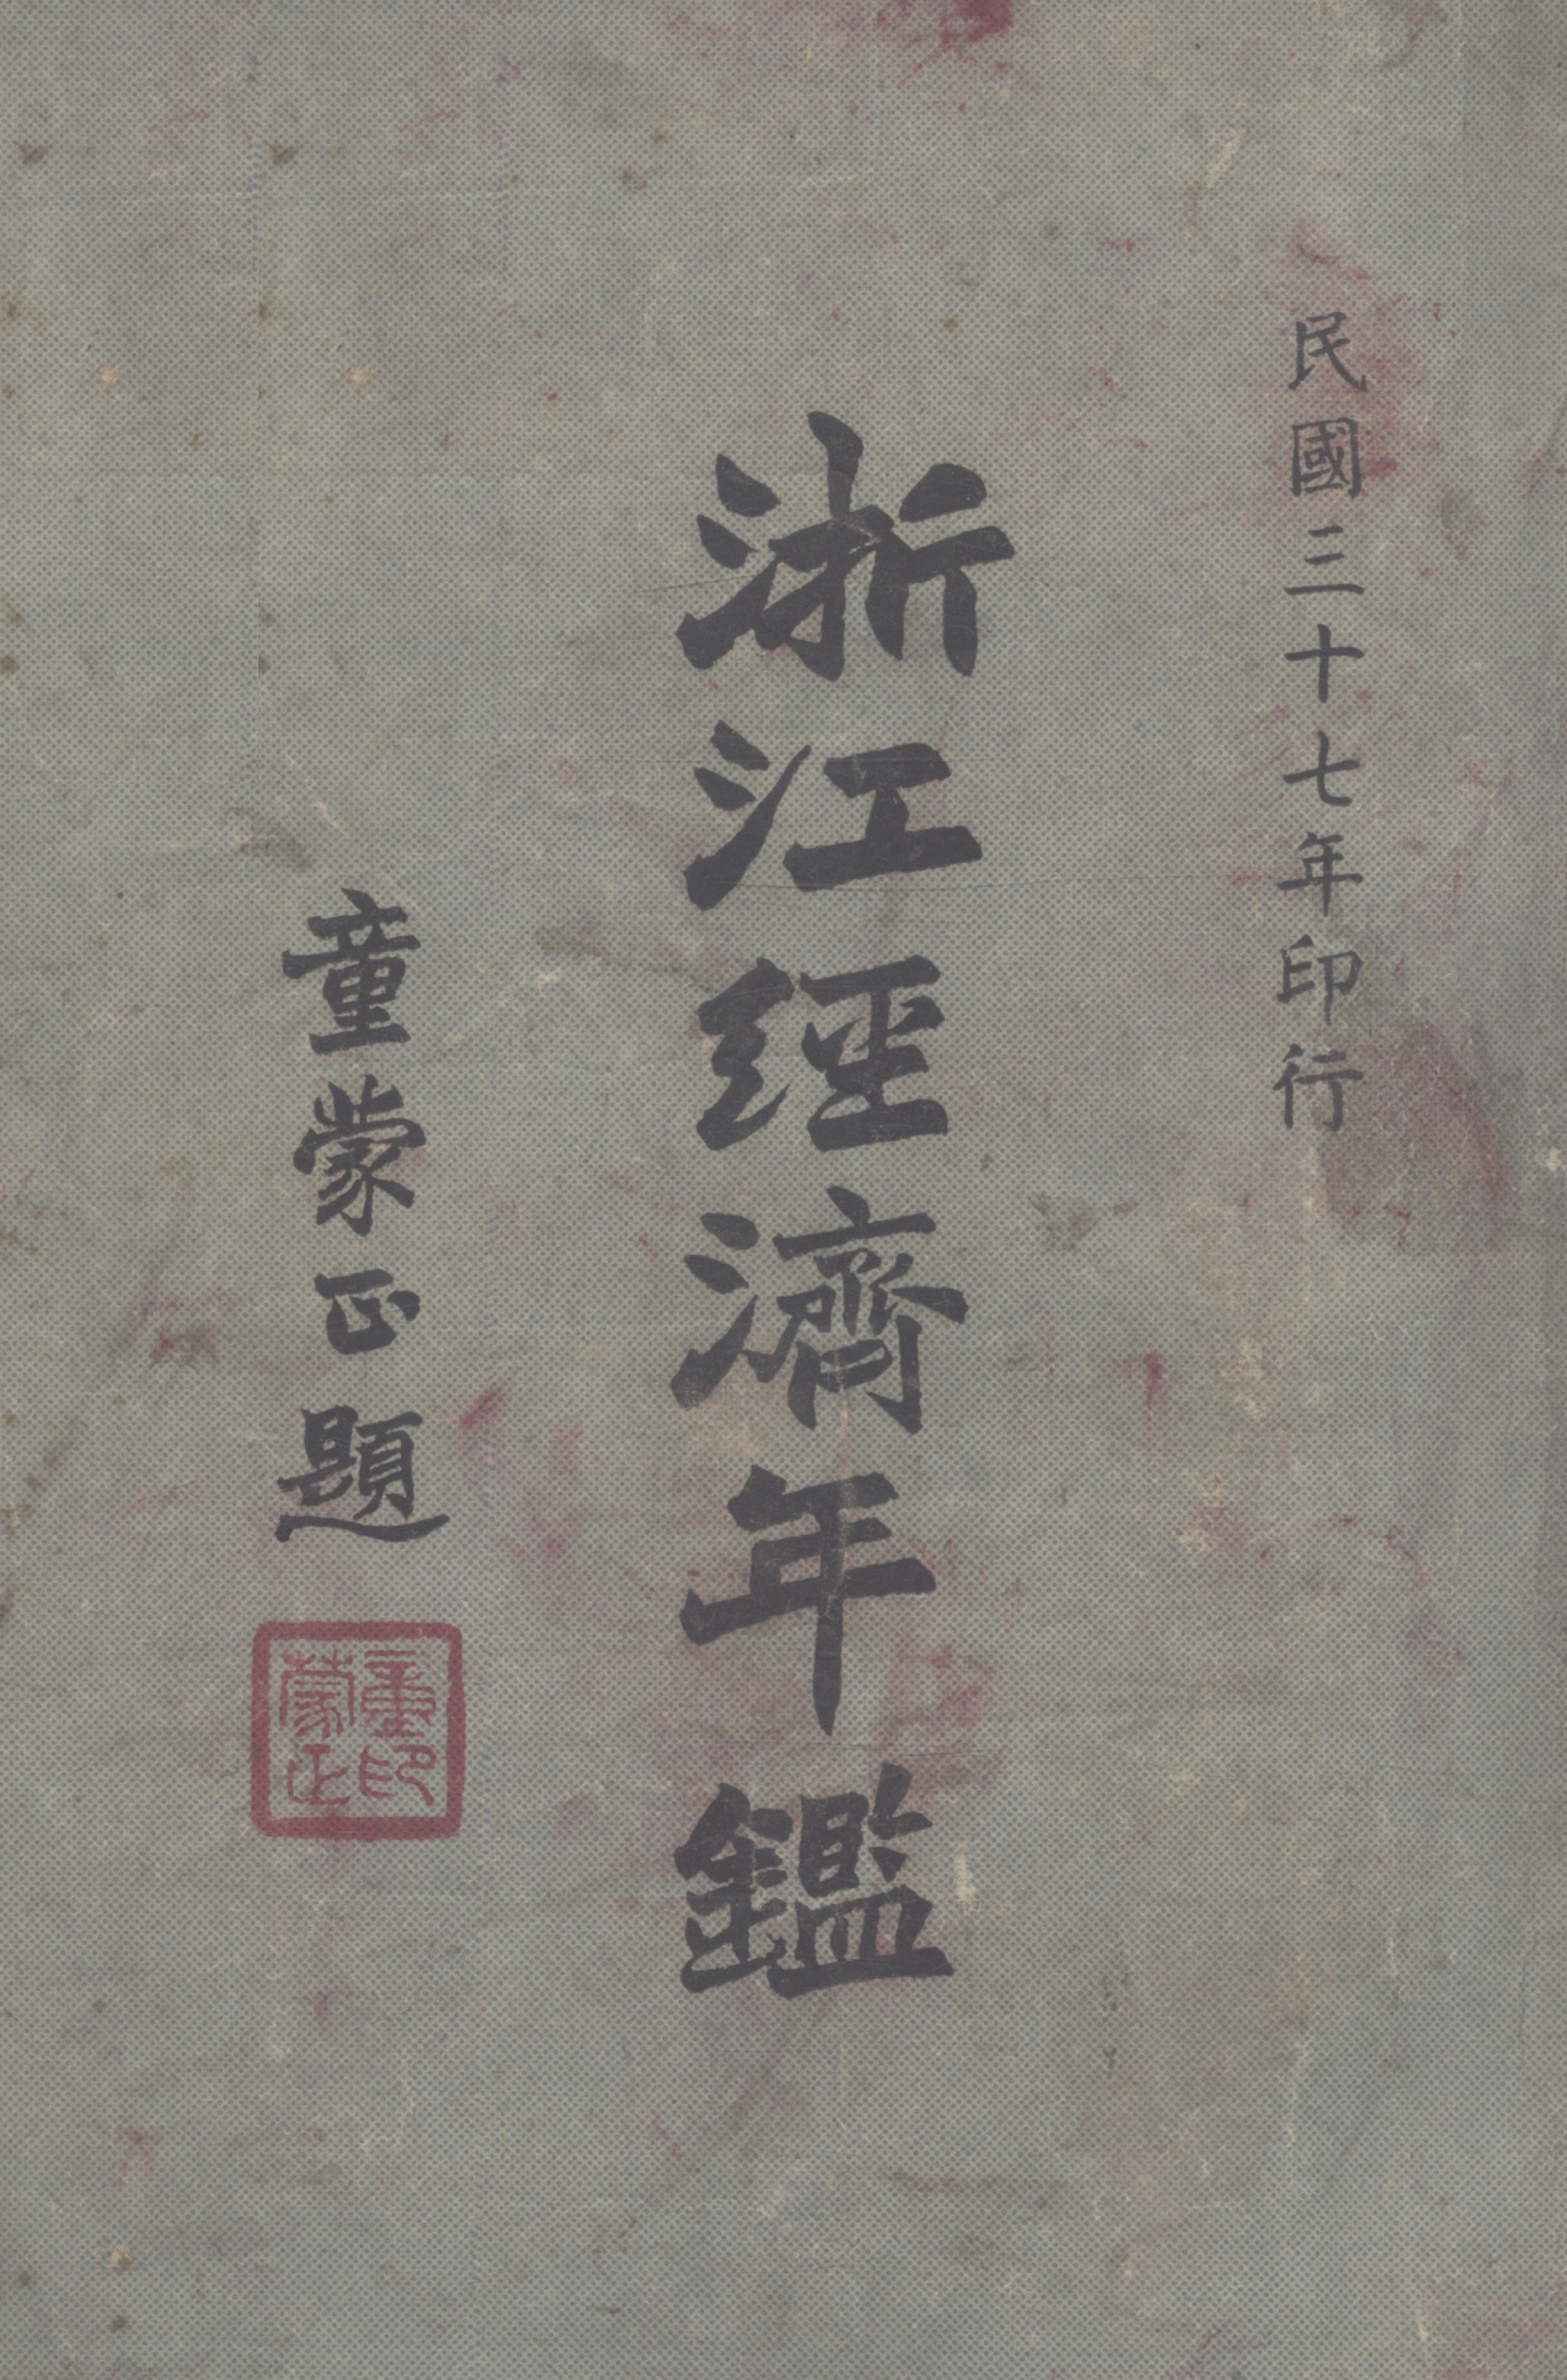 民國三十七年印行
浙江經濟年鑑
童蒙正題
童印
蒙正